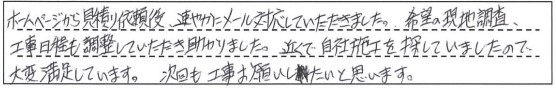 ホームページから見積り依頼後、速やかにメール対応していただきました。希望の現地調査、
工事日程も調整していただき助かりました。近くで自社施工を探していましたので、
大変満足しています。次回も工事お願いしたいと思います。